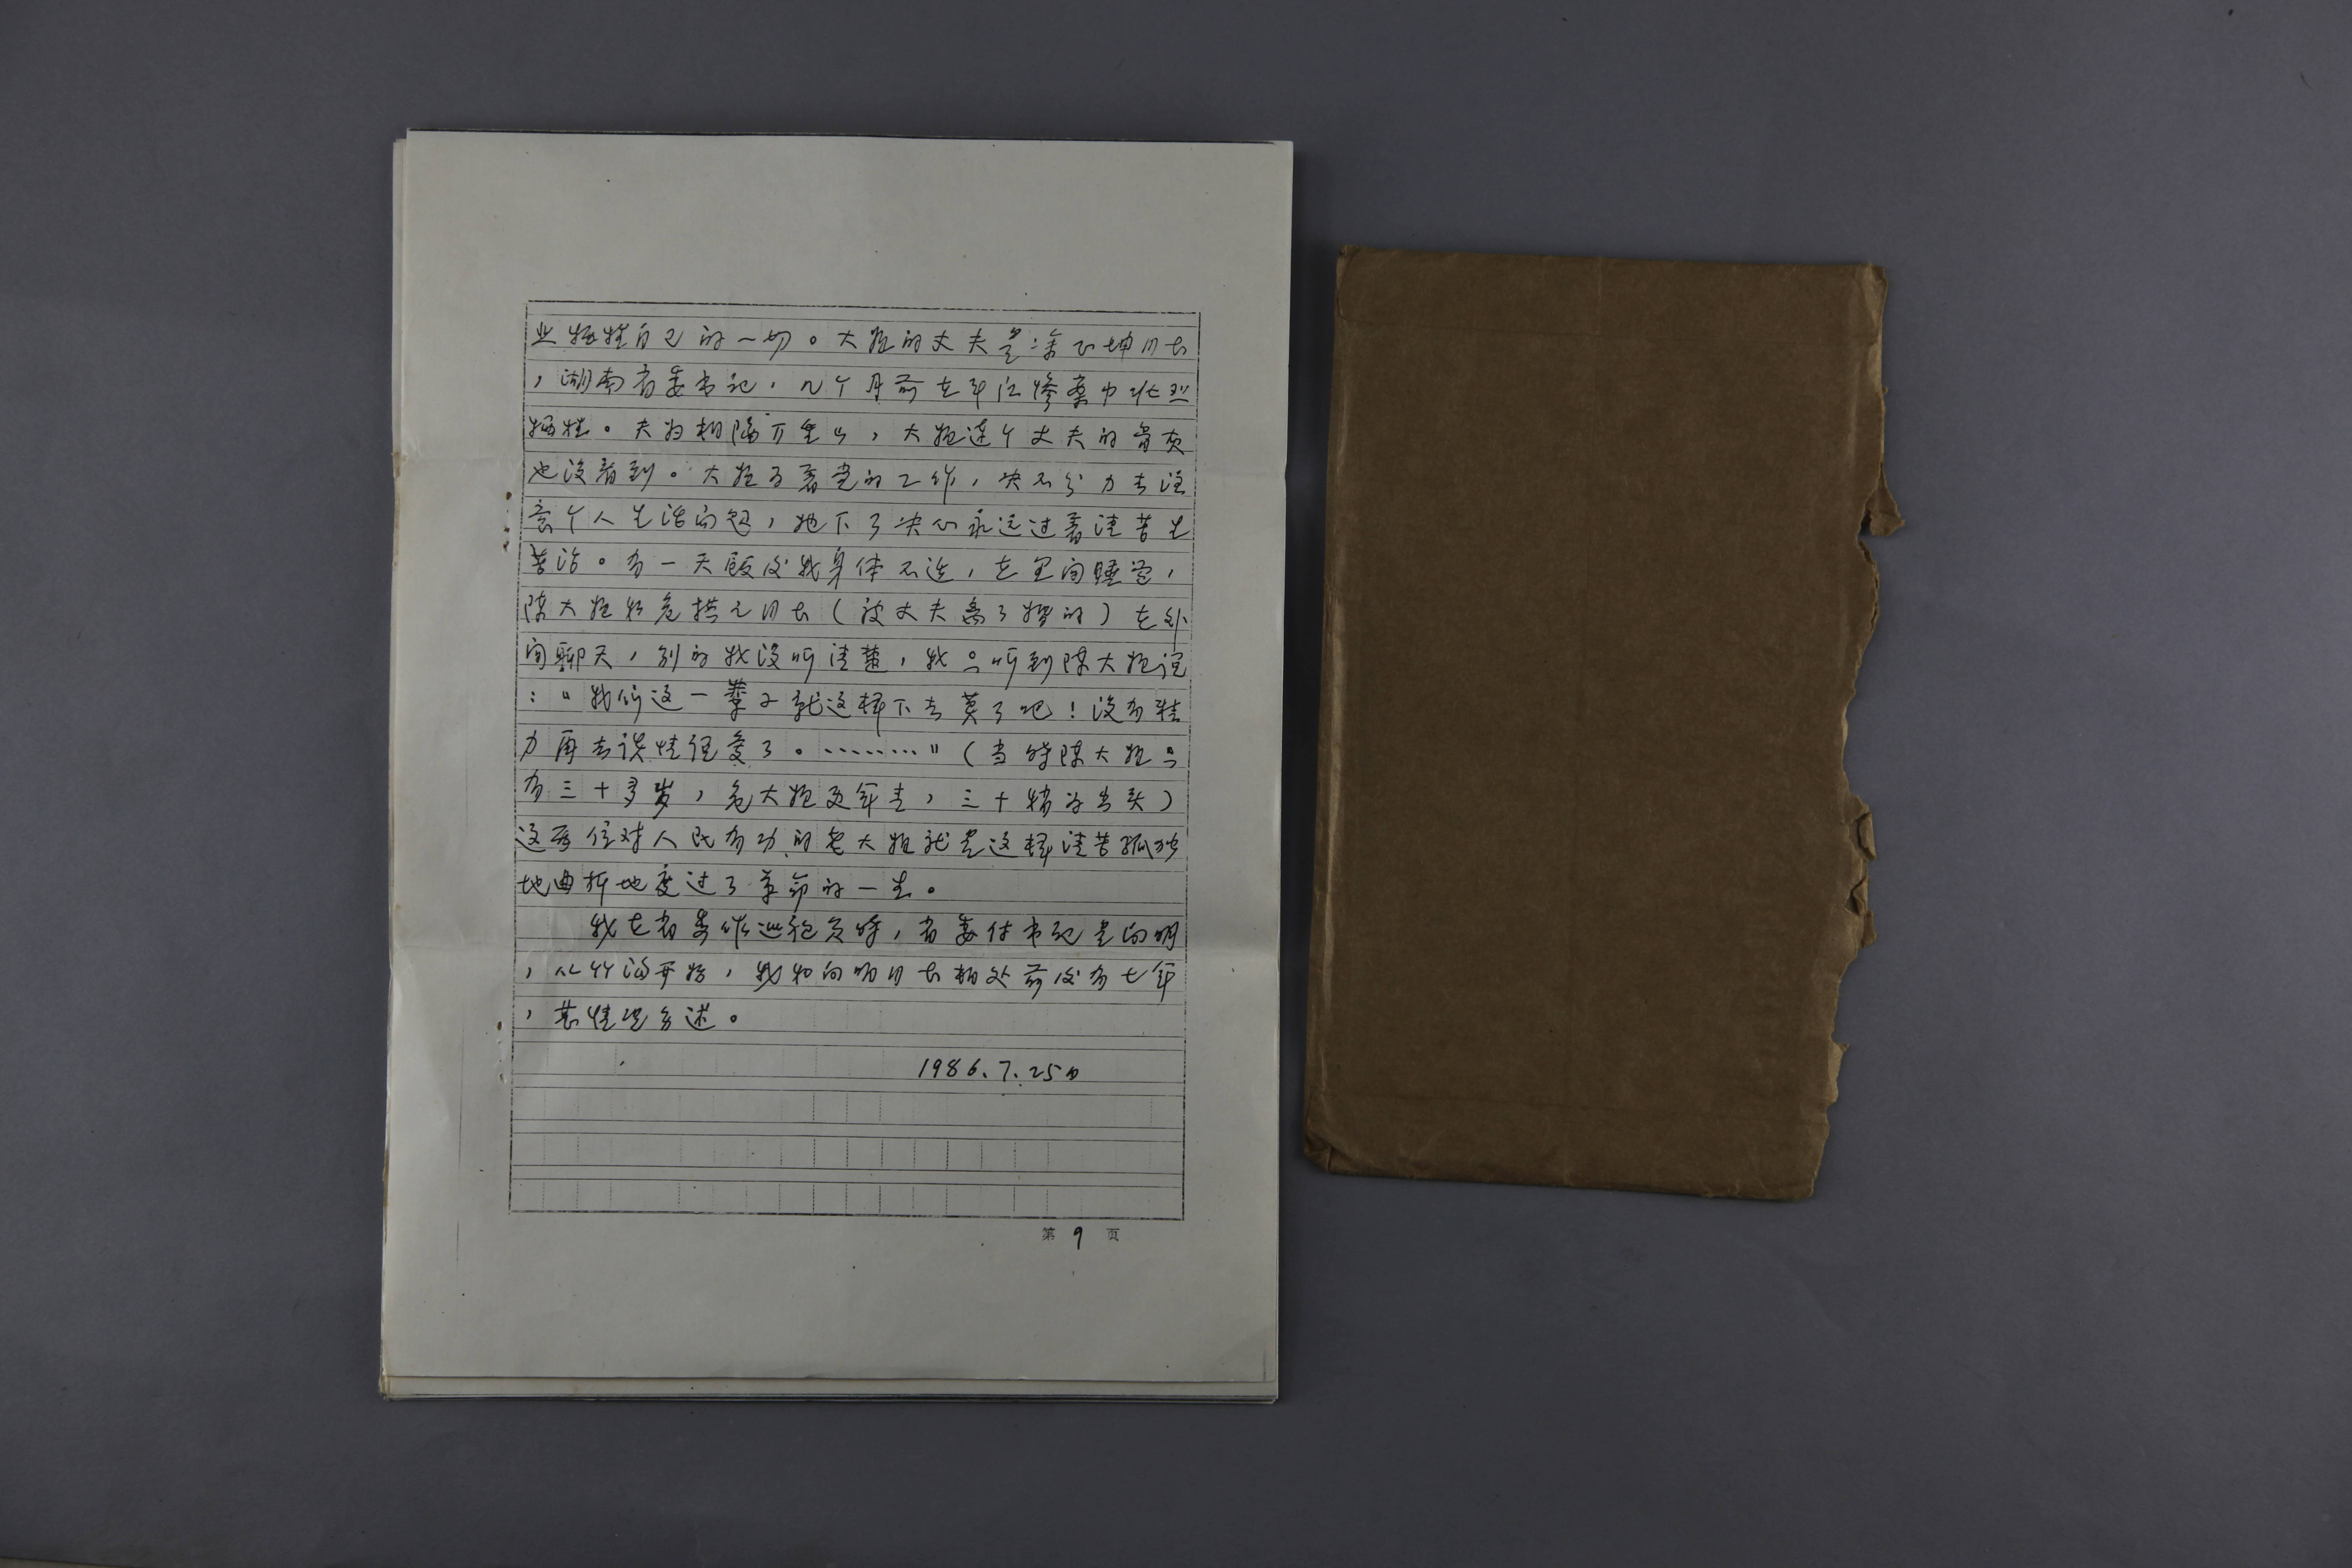 业牺牲自己的一切。大姐的丈夫是涂正坤同志
，湖南省委书记，几个月前在平江惨案中壮烈
牺牲。夫妇相隔万重山，大姐连个丈夫的骨灰
也没看到。大姐为着党的工作，决不分力去注
意个人生活问题，她下了决心永远过着清苦生
苦活。有一天饭后我身体不适，在里间睡觉，
陈大姐和危拱之同志（被丈夫离了婚的）在外
间聊天，别的我没听清楚，我只听到陈大姐说
：“我们这一辈子就这样下去算了吧！没有精
力再去谈情说爱了。………”（当时陈大姐只
有三十多岁，危大姐更年青，三十稍为出头）
这两位对人民有功的老大姐就是这样清苦孤独
地曲折地度过了革命的一生。
我在省委作巡视员时，省委付书记是向明
，从竹沟开始，我和向明同志相处前后有七年
，其情况另述。
1986.7.25日
第9页